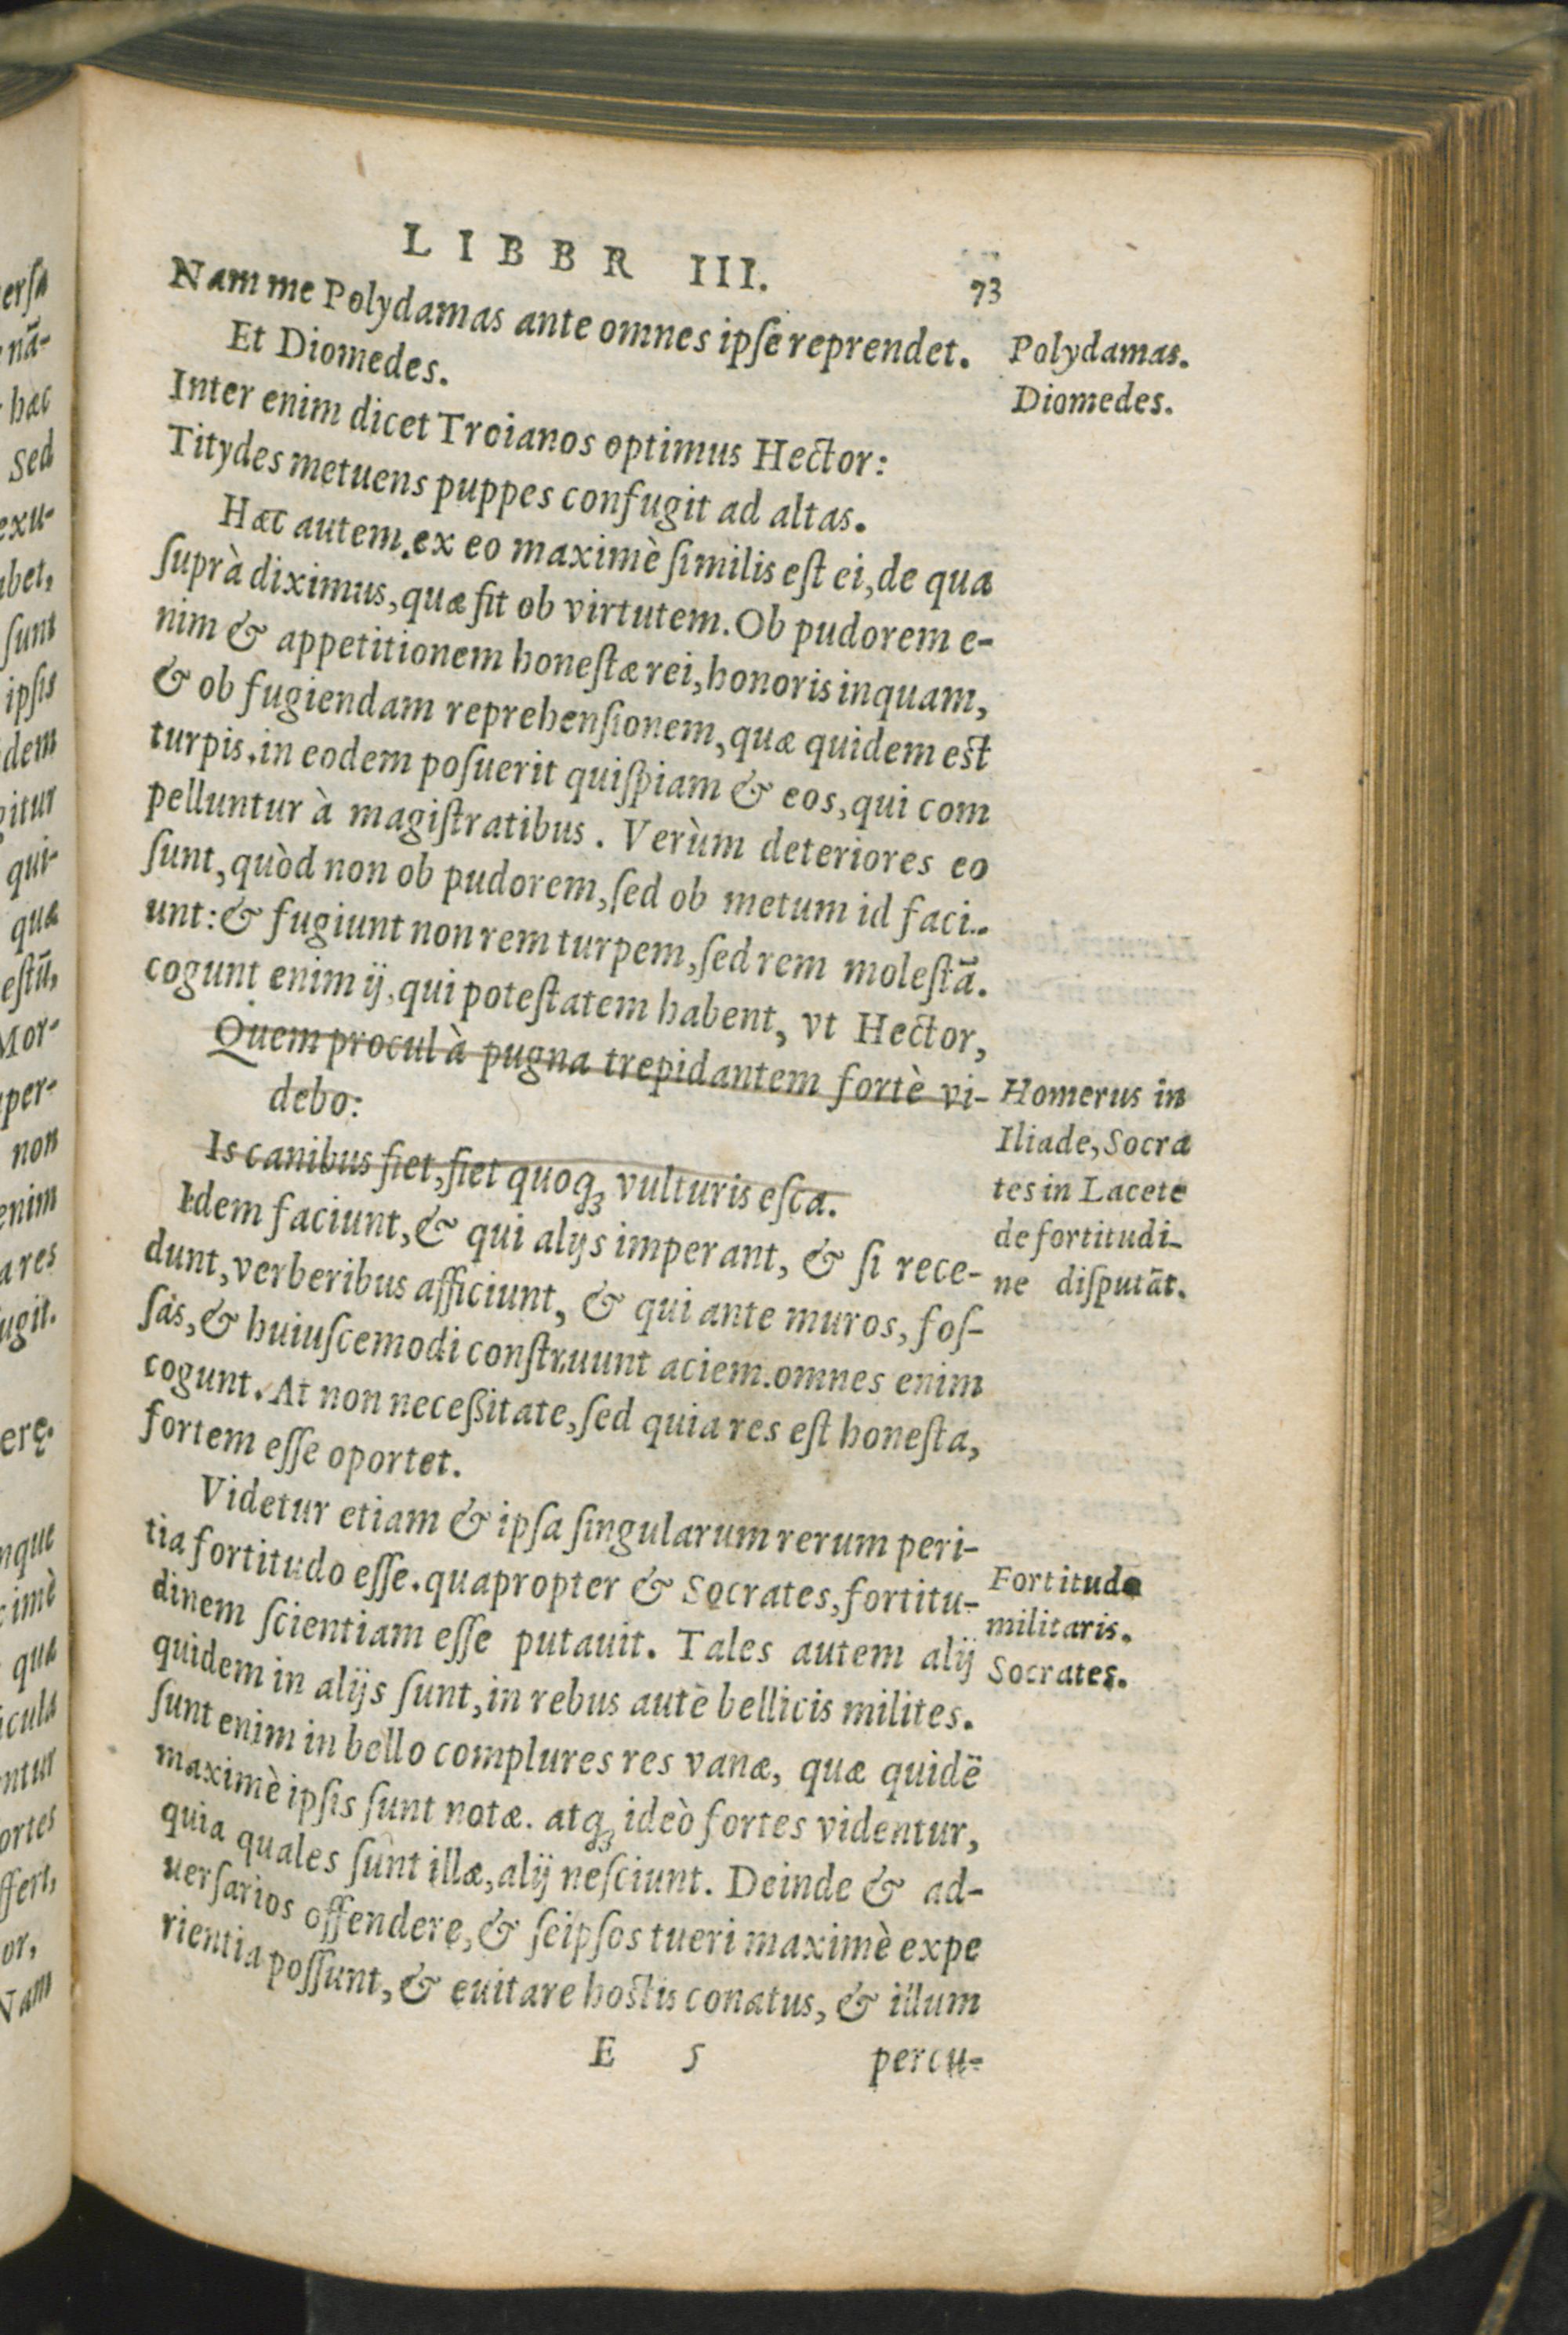 LIBBR III.
73
Nam me Polydamas ante omnes ipſe reprendet.
Polydamas.
Et Diomedes.
Diomedes.
Inter enim dicet Troianos optimus Hector:
Titydes metuens puppes confugit ad altas.
Hæc autem ex eo maximè ſimilis eſt ei, de qua
ſuprà diximus, quæ fit ob virtutem. Ob pudorem e-
nim & appetitionem honeſtæ rei, honoris inquam,
& ob fugiendam reprehenſionem, quæ quidem eſt
turpis. in eodem poſuerit quiſpiam & eos, qui com
pelluntur à magiſtratibus. Verùm deteriores eo
ſunt, quòd non ob pudorem, ſed ob metum id faci..
unt: & fugiunt non rem turpem, ſed rem moleſtā.
cogunt enim ij, qui poteſtatem habent, vt Hector,
Quem procul à pugna trepidantem fortè vi-
debo:
Is canibus fiet, fiet quoqꝫ vulturis eſca.
Homerus in
Iliade, Socra
tes in Lacete
de fortitudi-
ne diſputāt.
Idem faciunt, & qui alijs imperant, & ſi rece-
dunt, verberibus afficiunt, & qui ante muros, foſ-
ſas, & huiuſcemodi conſtruunt aciem. omnes enim
cogunt. At non neceßitate, ſed quia res eſt honeſta,
fortem eſſe oportet.
Videtur etiam & ipſa ſingularum rerum peri-
tia fortitudo eſſe. quapropter & Socrates, fortitu-
dinem ſcientiam eſſe putauit. Tales autem alij
quidem in alijs ſunt, in rebus autē bellicis milites.
Fortitudo
militaris.
Socrates.
ſunt enim in bello complures res vanæ, quæ quidē
maximè ipſis ſunt notæ. atqꝫ ideò fortes videntur,
quia quales ſunt illæ, alij neſciunt. Deinde & ad-
uerſarios offendere, & ſeipſos tueri maximè expe
rientia poſſunt, & euitare hoſtis conatus, & illum
E 5
percu-